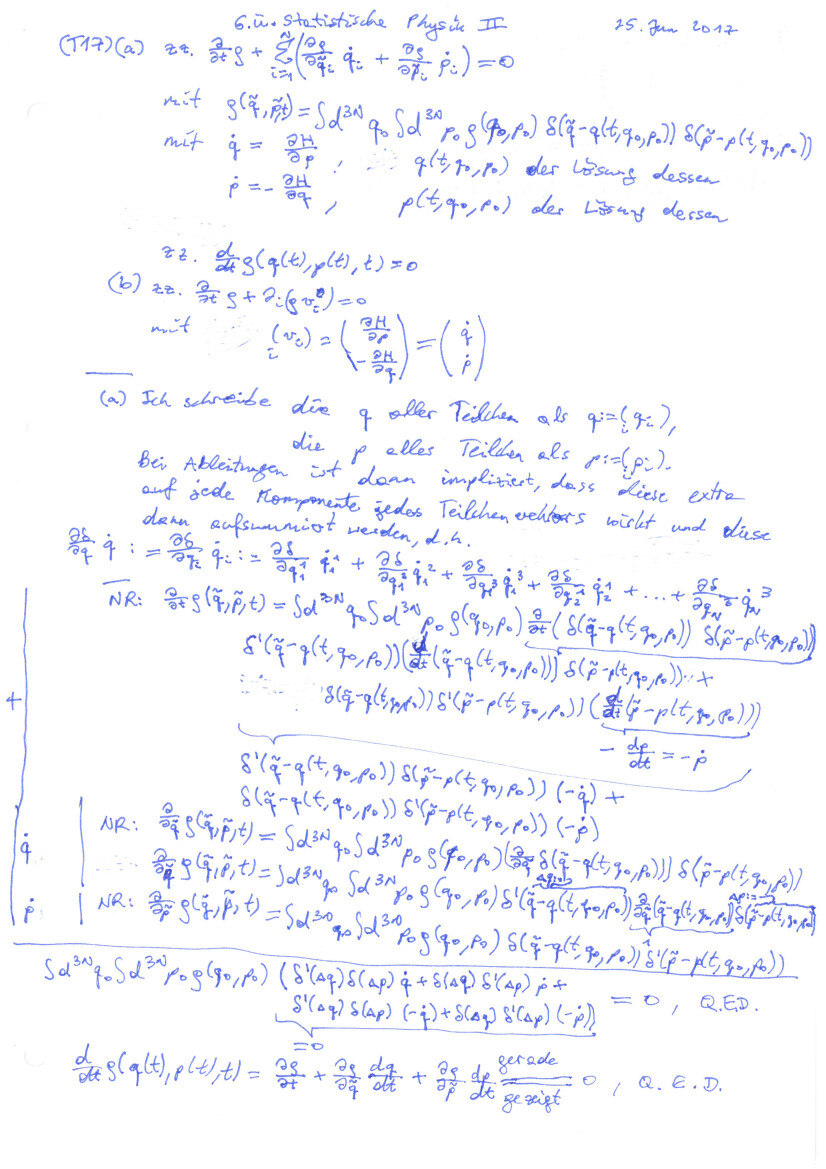 6. Ü. Statistische Physik II 25. Jun 2017
(T17)(a) zz. ∂/∂t ρ + Σ_{i=1}^{N} (∂ρ/∂q̃_i q̇_i + ∂ρ/∂p̃_i ṗ_i) = 0
mit ρ(q̃,p̃,t) = ∫d^{3N}q₀ ∫d^{3N}p₀ ρ(q₀,p₀) δ(q̃-q(t,q₀,p₀)) δ(p̃-p(t,q₀,p₀))
mit q̇ = ∂H/∂p , q(t,q₀,p₀) der Lösung dessen
ṗ = -∂H/∂q , p(t,q₀,p₀) der Lösung dessen
zz. d/dt ρ(q(t),p(t),t) = 0
(b) zz. ∂/∂t ρ + ∂_i(ρ v_i) = 0
mit (v_i)_i = (∂H/∂p, -∂H/∂q) = (q̇, ṗ)
(a) Ich schreibe die q aller Teilchen als q:=(q_i)_i,
die p alles Teilchen als p:=(p_i)_i.
Bei Ableitungen ist dann impliziert, dass diese extra
auf jede Komponente jedes Teilchenvektors wirkt und diese
dann aufsummiert werden, d.h.
∂δ/∂q q̇ := ∂δ/∂q_i q̇_i := ∂δ/∂q_1^1 q̇_1^1 + ∂δ/∂q_1^2 q̇_1^2 + ∂δ/∂q_1^3 q̇_1^3 + ∂δ/∂q_2^1 q̇_2^1 + ... + ∂δ/∂q_N^3 q̇_N^3
NR: ∂/∂t ρ(q̃,p̃,t) = ∫d^{3N}q₀ ∫d^{3N}p₀ ρ(q₀,p₀) ∂/∂t (δ(q̃-q(t,q₀,p₀)) δ(p̃-p(t,q₀,p₀)))
δ'(q̃-q(t,q₀,p₀)) (d/dt(q̃-q(t,q₀,p₀))) δ(p̃-p(t,q₀,p₀)) +
+ δ(q̃-q(t,q₀,p₀)) δ'(p̃-p(t,q₀,p₀)) (d/dt(p̃-p(t,q₀,p₀)))
-dp/dt = -ṗ
δ'(q̃-q(t,q₀,p₀)) δ(p̃-p(t,q₀,p₀)) (-q̇) +
δ(q̃-q(t,q₀,p₀)) δ'(p̃-p(t,q₀,p₀)) (-ṗ)
q̇ | NR: ∂/∂q̃ ρ(q̃,p̃,t) = ∫d^{3N}q₀ ∫d^{3N}p₀ ρ(q₀,p₀) (∂/∂q̃ δ(q̃-q(t,q₀,p₀))) δ(p̃-p(t,q₀,p₀))
∂/∂q̃ ρ(q̃,p̃,t) = ∫d^{3N}q₀ ∫d^{3N}p₀ ρ(q₀,p₀) δ'(q̃-q(t,q₀,p₀)) ∂/∂q̃(q̃-q(t,q₀,p₀)) δ(p̃-p(t,q₀,p₀))
Δq:= Δp:= 1
ṗ | NR: ∂/∂p̃ ρ(q̃,p̃,t) = ∫d^{3N}q₀ ∫d^{3N}p₀ ρ(q₀,p₀) δ(q̃-q(t,q₀,p₀)) δ'(p̃-p(t,q₀,p₀))
∫d^{3N}q₀ ∫d^{3N}p₀ ρ(q₀,p₀) (δ'(Δq) δ(Δp) q̇ + δ(Δq) δ'(Δp) ṗ +
δ'(Δq) δ(Δp) (-q̇) + δ(Δq) δ'(Δp) (-ṗ)) = 0 , Q.E.D.
=0
d/dt ρ(q(t),p(t),t) = ∂ρ/∂t + ∂ρ/∂q̃ dq/dt + ∂ρ/∂p̃ dp/dt = 0 , Q.E.D.
gerade
gezeigt